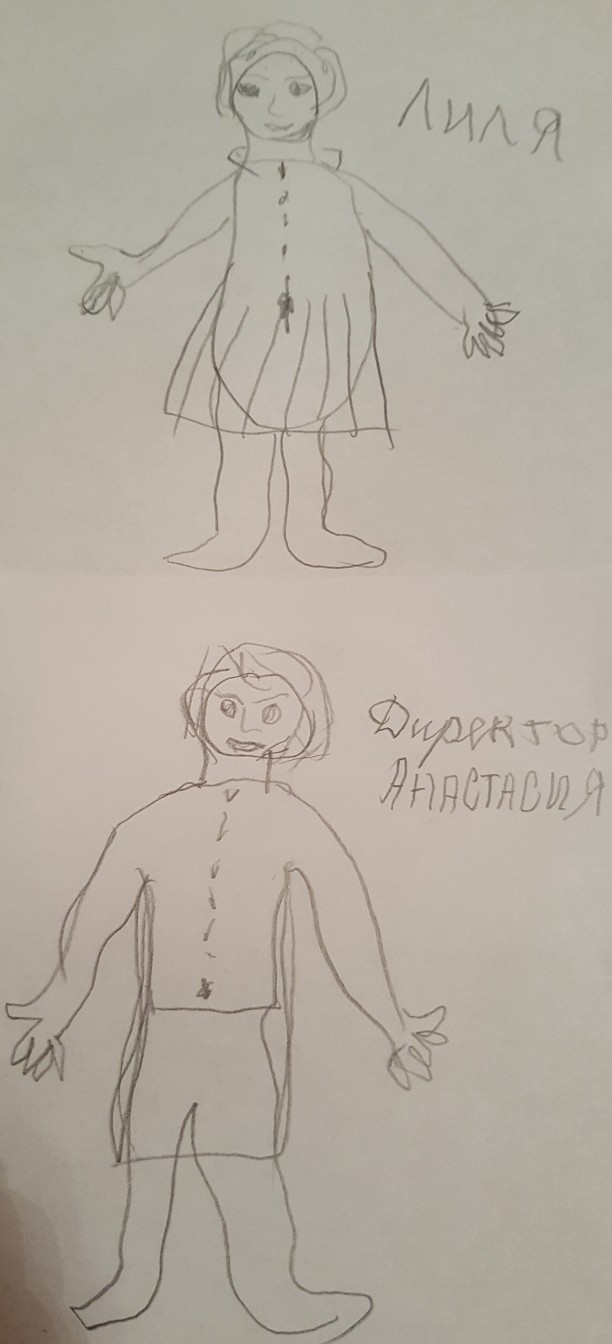 ЛИЛЯ
Директор
АНАСТАСИЯ